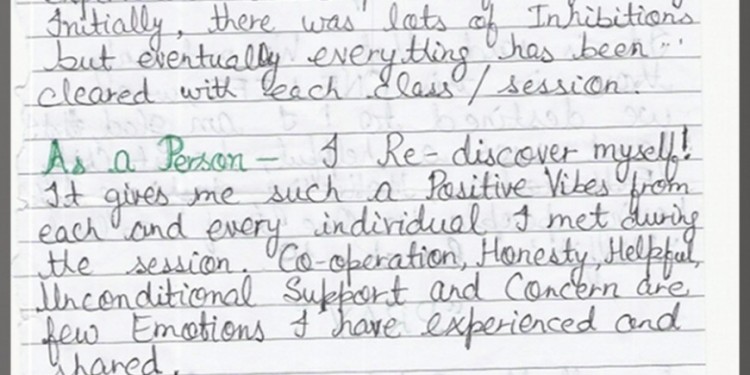 Initially, there was lots of Inhibitions
but eventually everything has been
cleared with each class / session.
As a Person - I Re-discover myself!
It gives me such a Positive Vibes from
each and every individual I met during
the session. Co-operation, Honesty, Helpful,
Unconditional Support and Concern are
few Emotions I have experienced and
shared.